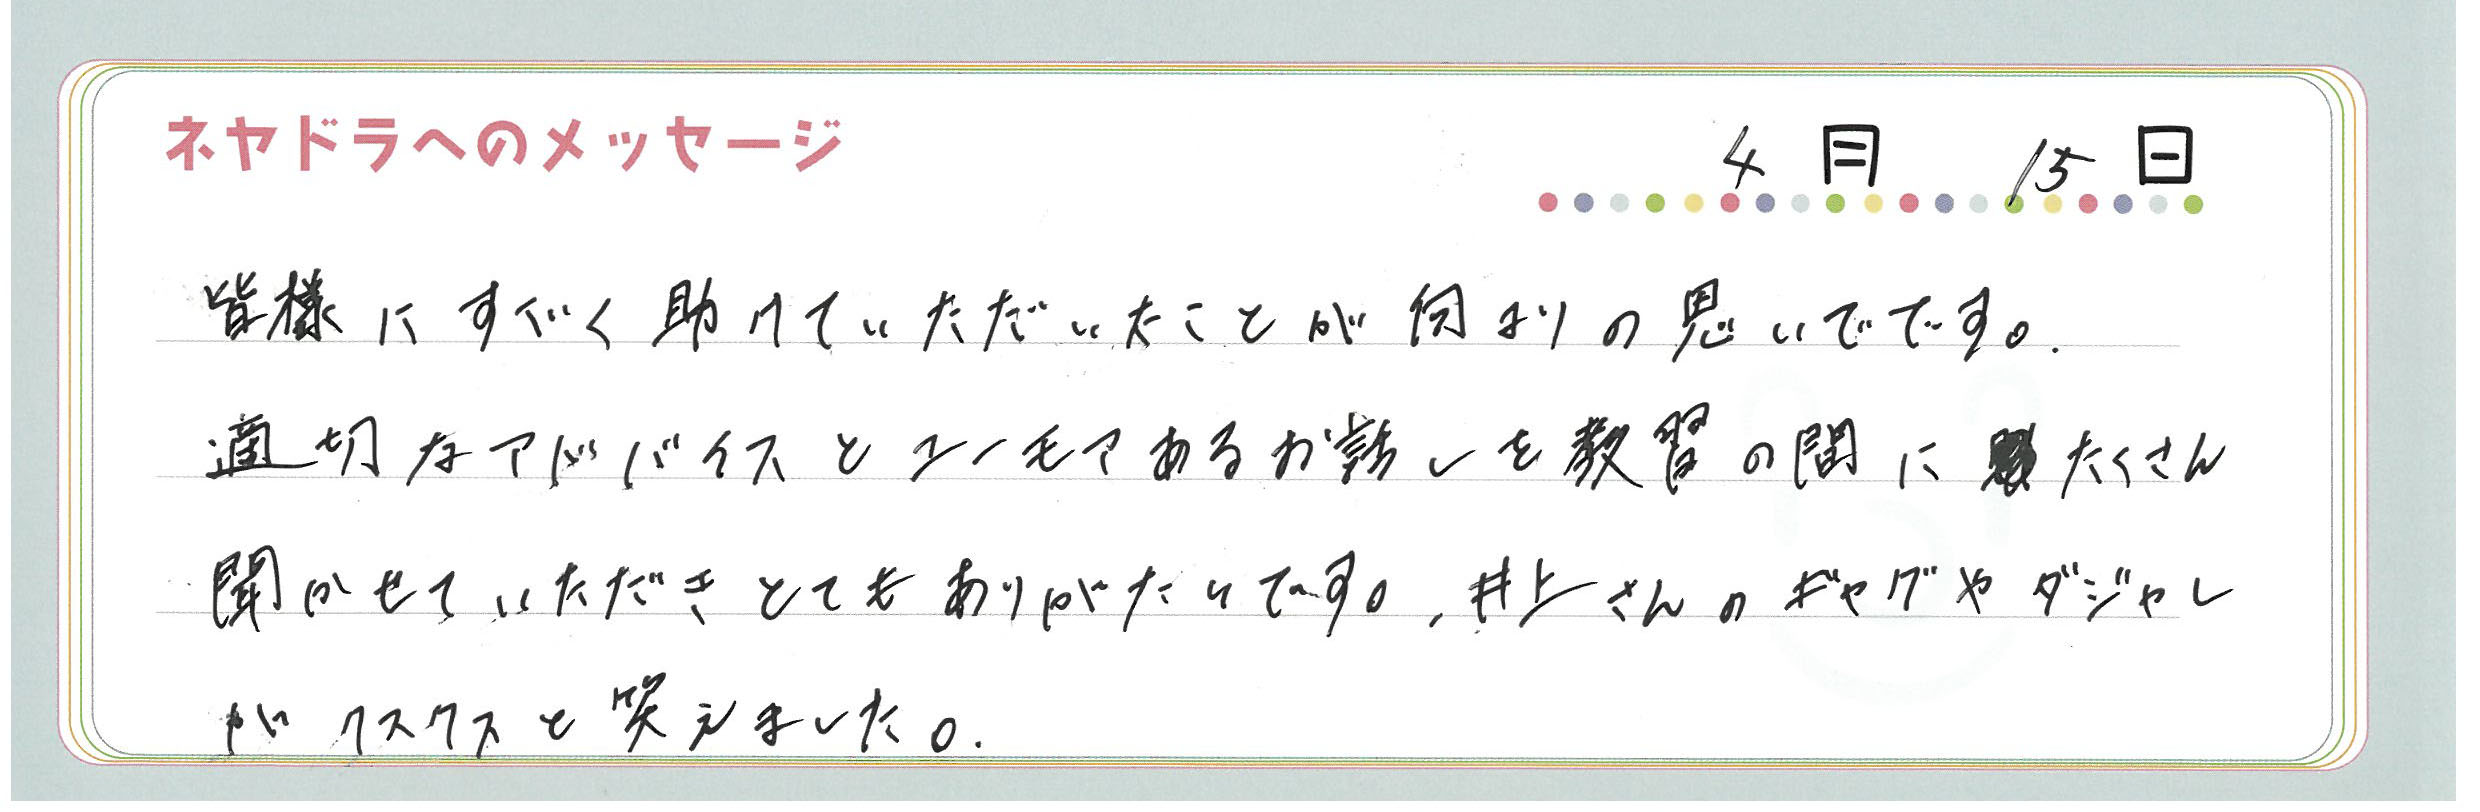 ネヤドラへのメッセージ
4月 15日
皆様にすごく助けていただいたことが何よりの思いでです。
適切なアドバイスとユーモアあるお話しを教習の間にたくさん
聞かせていただきとてもありがたいです。井上さんのギャグやダジャレ
がクスクスと笑えました。